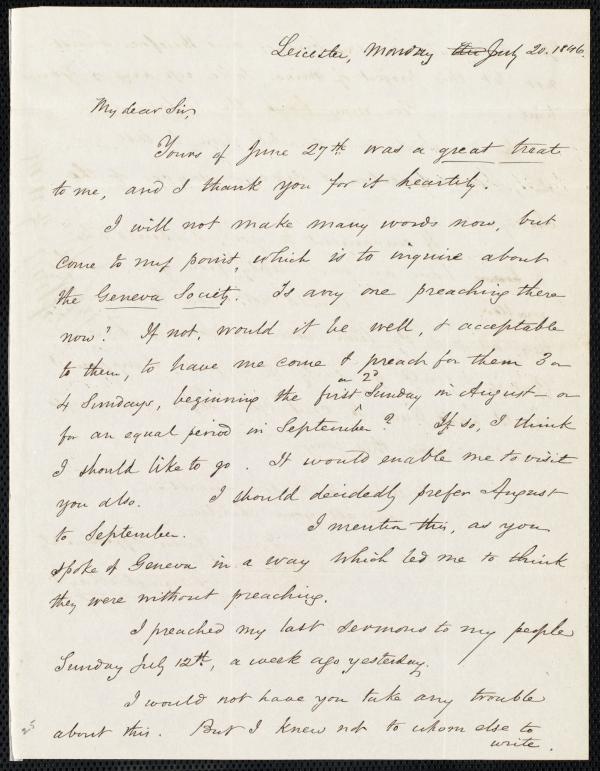 Leicester, Monday the July 20. 1846.
My dear Sir,
Yours of June 27th was a great treat
to me, and I thank you for it heartily.
I will not make many words now, but
come to my point, which is to inquire about
the Geneva Society. Is any one preaching there
now? If not, would it be well, & acceptable
to them, to have me come & preach for them 3 or
or 2d
4 Sundays, beginning the first Sunday in August – or
for an equal period in September? If so, I think
I should like to go. It would enable me to visit
you also. I should decidedly prefer August
to September. I mention this, as you
spoke of Geneva in a way which led me to think
they were without preaching.
I preached my last sermons to my people
Sunday July 12th, a week ago yesterday.
I would not have you take any trouble
about this. But I knew not to whom else to
write.